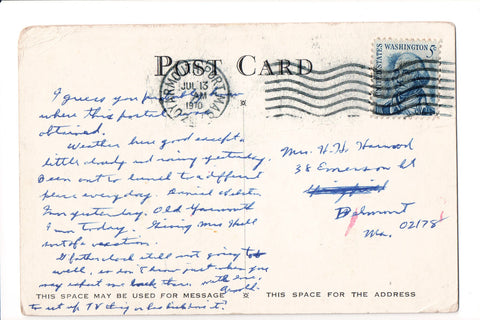 POST CARD
YARMOUTH PORT, MA
JUL 13
AM
1970
UNITED STATES
WASHINGTON 5c
I guess you know
where this postcard
obtained.
Weather here good except a
little cloudy and rainy yesterday.
Been out to lunch to a different
place every day. Daniel Webster
Inn yesterday. Old Yarmouth
Inn today. Giving Mrs Hill
sort of a vacation.
still not going too
well, so don't know just when you
may expect me back there. With love,
to set up TV thing or has he done it?
Mrs. H. H. Harwood
38 Emerson St
Belmont
Ma. 02178
THIS SPACE MAY BE USED FOR MESSAGE
THIS SPACE FOR THE ADDRESS